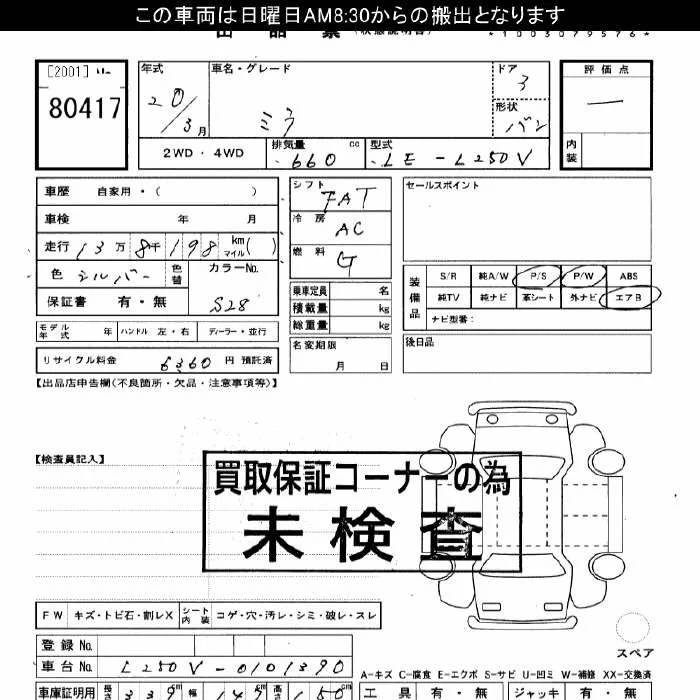 この車両は日曜日AM8:30からの搬出となります
出品票 (状態説明書) *1003079576*
[2001]
80417
年式 車名・グレード ドア 評価点
20/3月 ミラ 3 —
形状 バン
2WD・4WD 排気量 cc 660 型式 LE-L250V 内装
車歴 自家用・( )
車検 年 月
走行 13万8千198 km マイル ( )
色 シルバー 色替 カラーNo. S28
保証書 有・無
モデル年式 年 ハンドル 左・右 ディーラー・並行
リサイクル料金 6360 円 預託済
シフト FAT
冷房 AC
燃料 G
乗車定員 名
積載量 kg
総重量 kg
名変期限 月 日
セールスポイント
装備品 S/R 純A/W P/S P/W ABS
純TV 純ナビ 革シート 外ナビ エアB
ナビ型番:
後日品
【出品店申告欄(不良箇所・欠品・注意事項等)】
【検査員記入】
買取保証コーナーの為
未検査
FW キズ・トビ石・割レX シート内装 コゲ・穴・汚レ・シミ・破レ・スレ
スペア
登録No.
車台No. L250V-0101390
A-キズ C-腐食 E-エクボ S-サビ U-凹ミ W-補修 XX-交換済
車庫証明用 長さ 339cm 幅 147cm 高さ 150cm 工具 有・無 ジャッキ 有・無